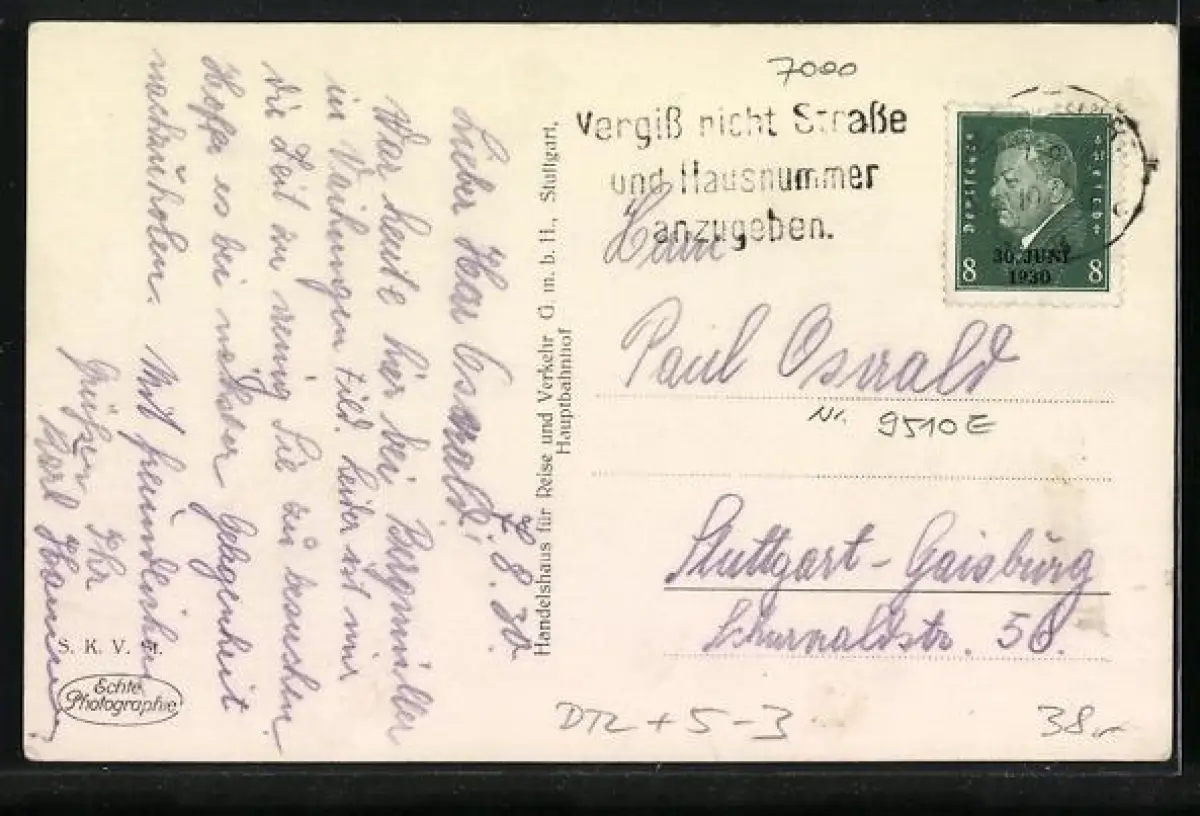 7000
Vergiß nicht Straße
und Hausnummer
anzugeben.
Deutsches Reich
8 8
30. JUNI
1930
Herrn
Paul Oswald
Nr. 9510E
Stuttgart-Gaisburg
Schurwaldstr. 56.
DR + 5-3
38.-
Handelshaus für Reise und Verkehr G. m. b. H., Stuttgart,
Hauptbahnhof
7.8.30.
Lieber Herr Oswald!
War heute hier bei Bergmüller
in Vaihingen Fild. Leider ist mir
die Zeit zu wenig Sie zu besuchen.
Hoffe es bei nächster Gelegenheit
nachzuholen. Mit freundlichen
Grüßen Ihr
Karl
S. K. V. St.
Echte
Photographie